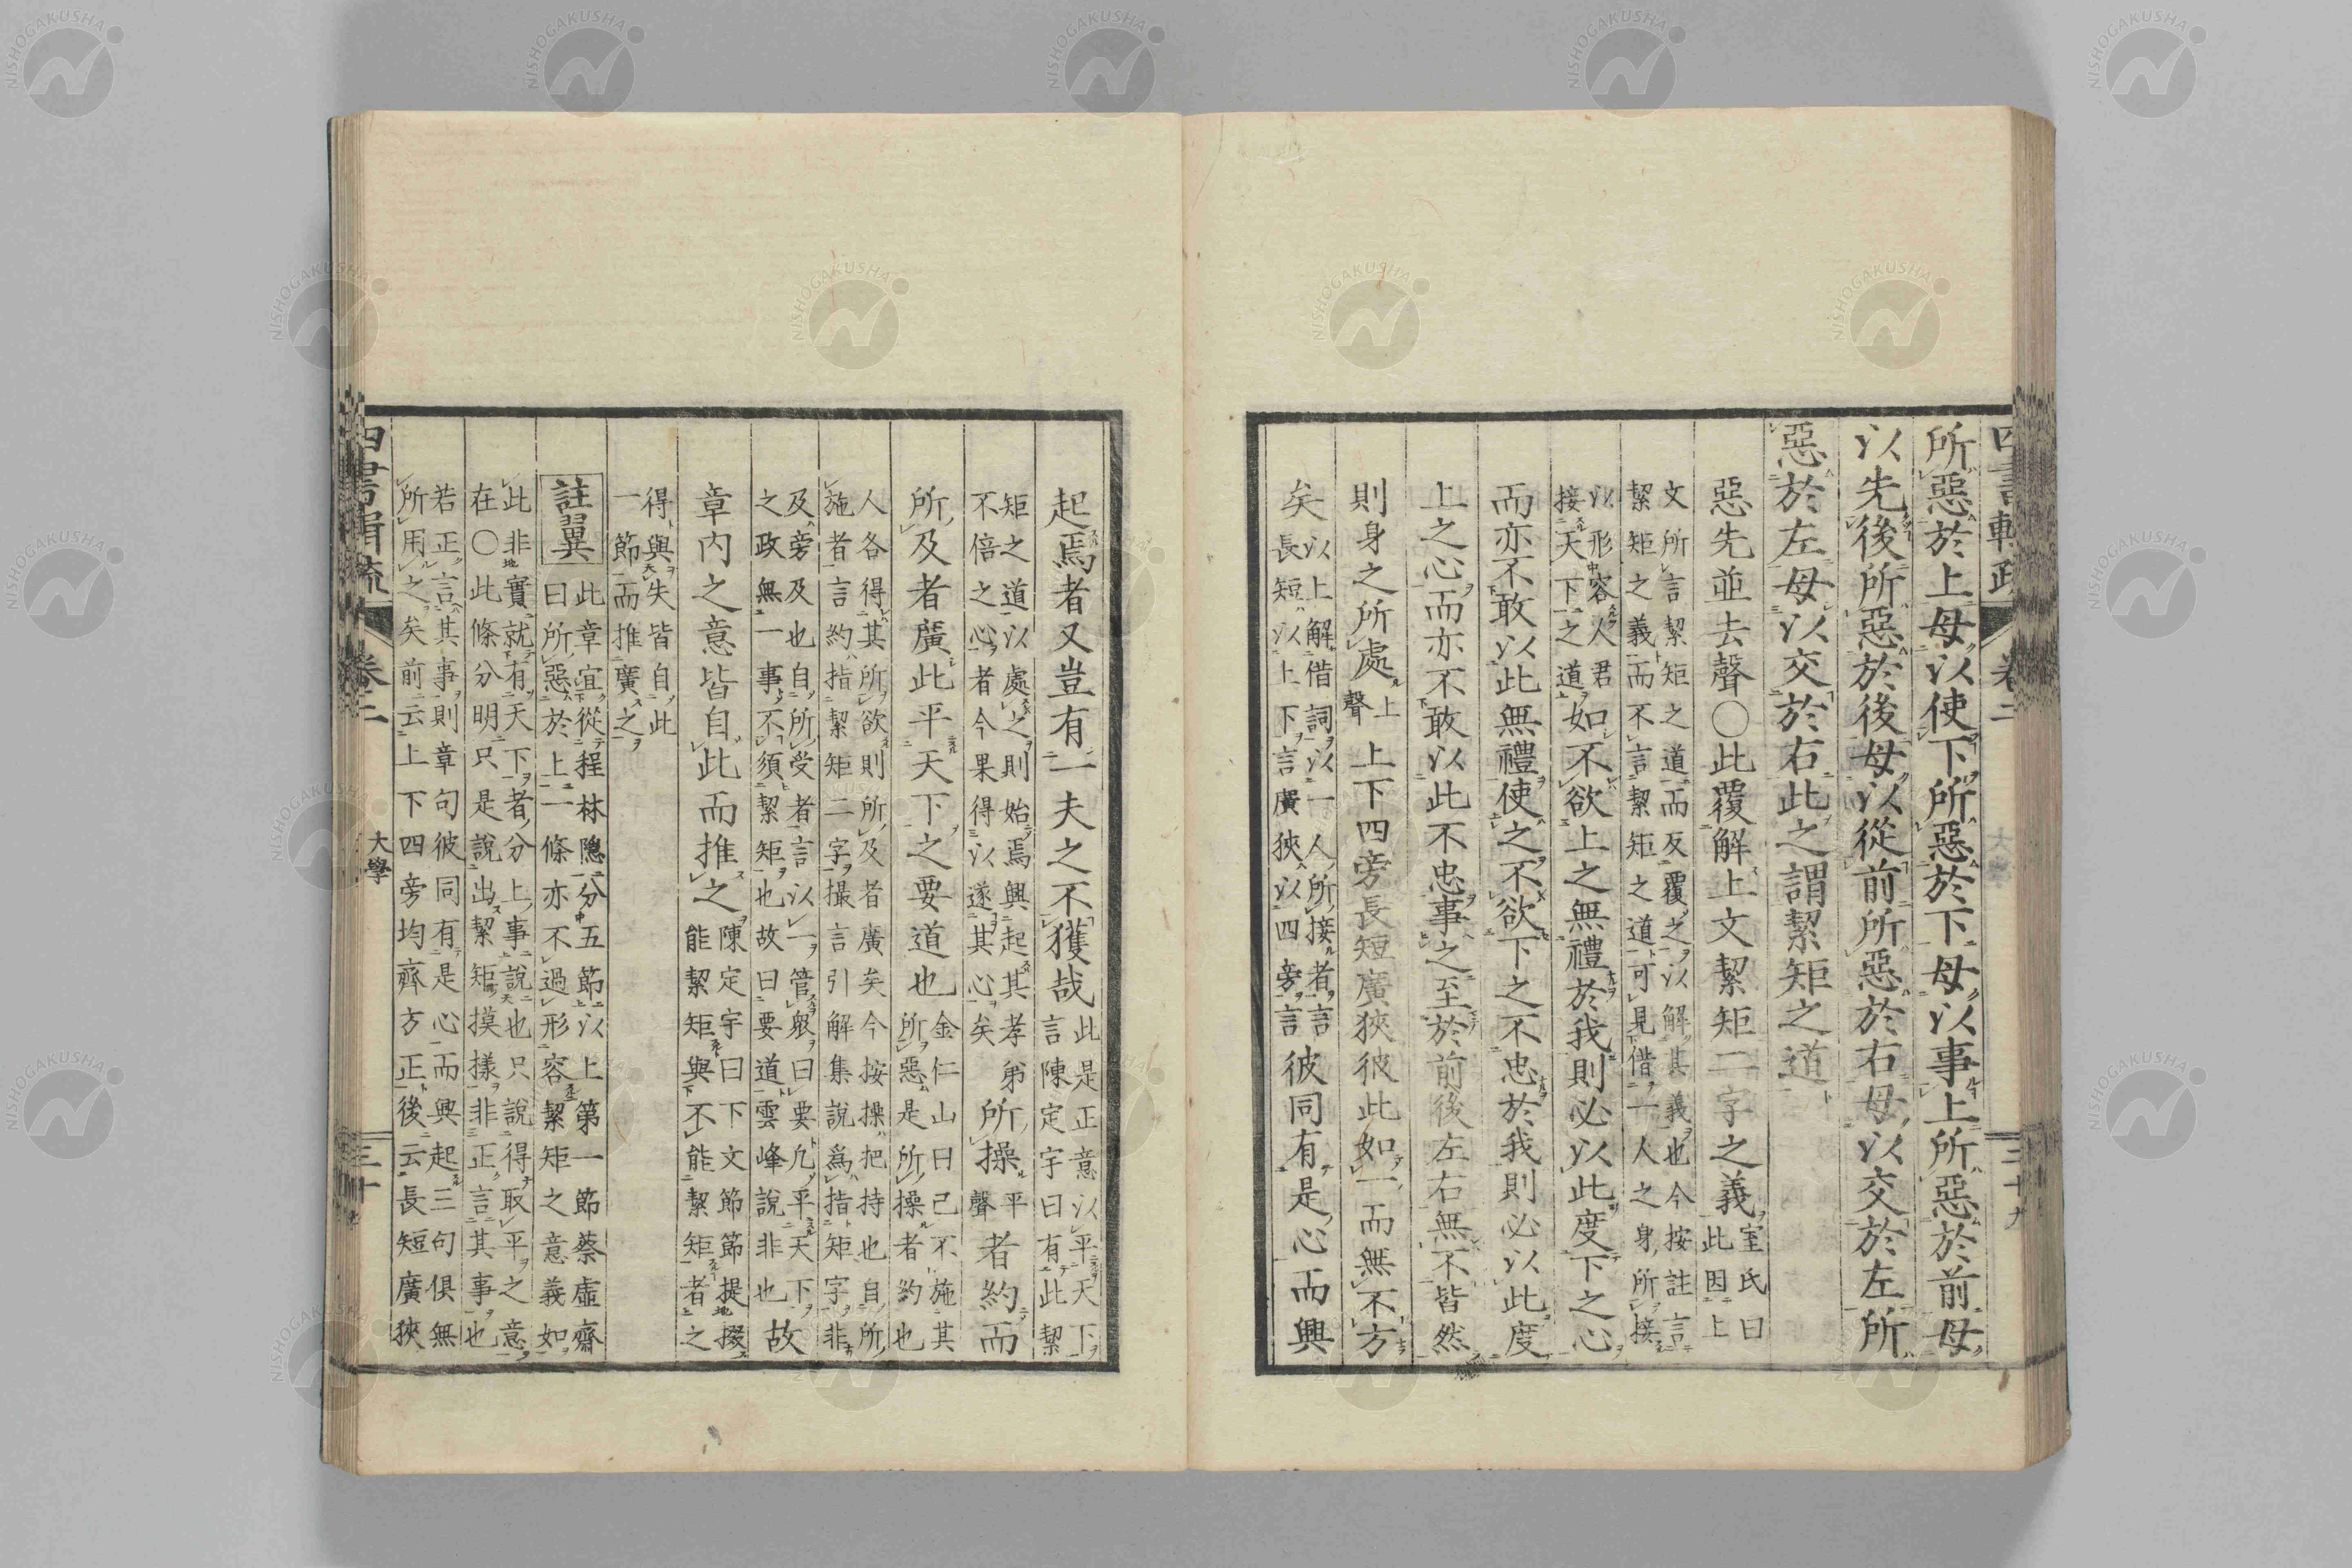 四書輯疏　卷二　三十九
所惡於上毋以使下所惡於下毋以事上所惡於前毋
以先後所惡於後毋以從前所惡於右毋以交於左所
惡於左毋以交於右此之謂絜矩之道
惡先並去聲〇此覆解上文絜矩二字之義室氏曰
此因上
文所言絜矩之道而反覆之以解其義也今按註言
絜矩之義而不言絜矩之道可見借一人之身所接
以形容人君
接天下之道如不欲上之無禮於我則必以此度下之心
而亦不敢以此無禮使之不欲下之不忠於我則必以此度
上之心而亦不敢以此不忠事之至於前後左右無不皆然
則身之所處上聲上下四旁長短廣狹彼此如一而無不方
矣以上解借詞以一人所接者言
長短以上下言廣狹以四旁言彼同有是心而興
起焉者又豈有一夫之不獲哉此是正意以平天下
言陳定宇曰有此絜
矩之道以處之則始焉興起其孝弟
不倍之心者今果得以遂其心矣所操平聲者約而
所及者廣此平天下之要道也金仁山曰己不施其
所惡是所操者約也
人各得其所欲則所及者廣矣今按操把持也自所
施者言約指絜矩二字撮言引解集說爲指矩字非
及旁及也自所受者言以一管衆曰要凡平天下
之政無一事不須絜矩也故曰要道雲峰說非也故
章內之意皆自此而推之陳定宇曰下文節節提掇
能絜矩與不能絜矩者之
得與失皆自此
一節而推廣之
註翼此章宜從程林隱分五節以上第一節蔡虛齋
曰所惡於上一條亦不過形容絜矩之意義如
此非實就有天下者分上事說也只說得取平之意
在〇此條分明只是說出絜矩摸樣非正言其事也
若正言其事則章句彼同有是心而興起三句俱無
所用之矣前云上下四旁均齊方正後云長短廣狹
四書輯疏　卷二　大學　三十